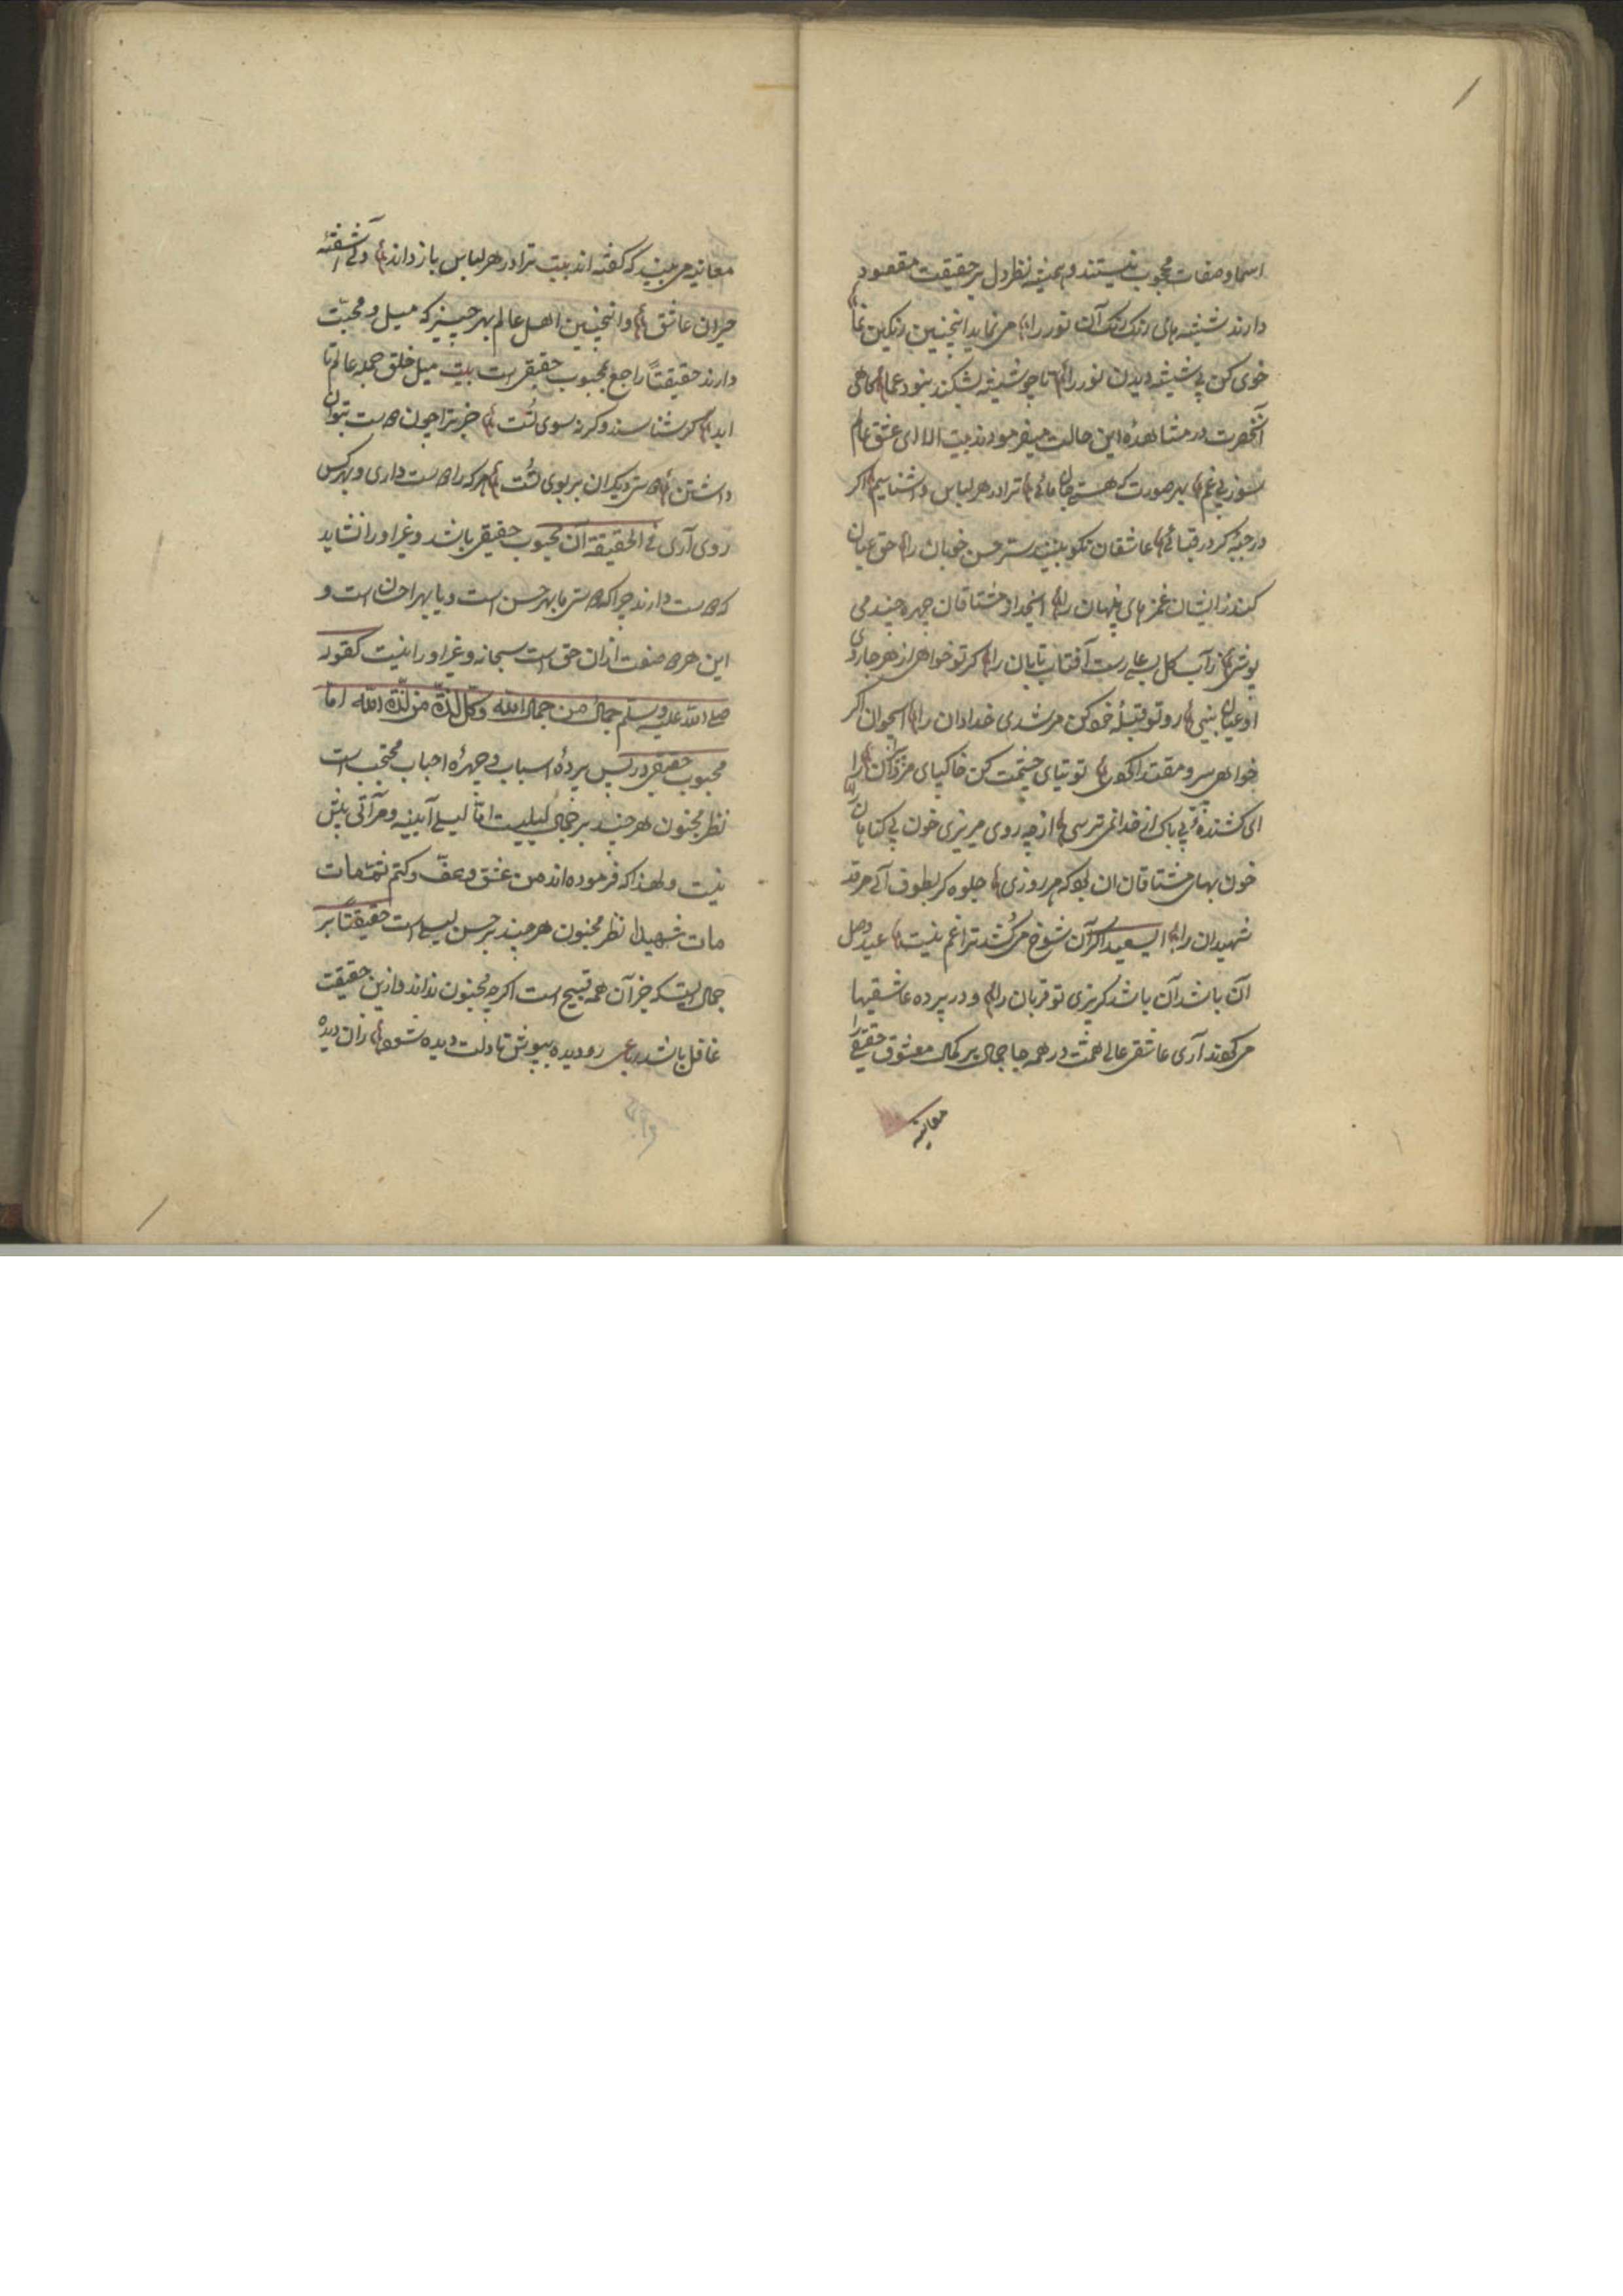 اسما و صفات محجوب نیستند و همیشه نظر دل بر حقیقت مقصود
دارند شیشه های رنک رنک آن نور را می نماید اینچنین رنکین نما
خوی کن بی شیشه دیدن نور را تا چو شیشه بشکند نبود عما کاهی
آنحضرت در مشاهده این حالت میفرمودند بیت الا ای عشق عالم
سوز بی غم بهر صورت که هستی جان مائی ترا در هر لباس واشناسیم اکر
در جبه کر در قبائی عاشقان نکو بینند ستر حسن خوبان را حق عیان
کنند زایشان غمز های پنهان را ایخدا و مشتاقان چهره چند می
پوشی زآب کل بعاریست آفتاب تابان را کر تو خواهی از هر جا روی
او عیان بینی رو تو قبلهٔ خود کن مرشدی خدادان را ایجوان اکر
خواهی پیر و مقتدا کوی توتیای چشمت کن خاکپای مردان را
ای کشندهٔ بی باک از خدا نمی ترسی از چه روی میریزی خون بی کناهان را
خون بهای مشتاقان ان بود که هر روزی جلوه کر بطوف آئی مرقد
شهیدان را ای سعید اکر آن شوخ می کشد ترا غم نیست عید وصل
آن باشد آن باشد کریزی تو قربان را و در پرده عاشقیها
می کردند آری عاشق عالی همت در همه جا جمال پر کمال معشوق حقیقی را
معاینه
معاینه می بیند که کفته اند بیت ترا در هر لباس باز داند دلی آشفتهٔ
حیران عاشق و اینچنین اهل عالم بهر چیز که میل و محبت
دارند حقیقتاً راجع بمحبوب حقیقی است بیت میل خلق جمله عالم تا
ابد کر شناسند و کر نه سوی تست جز ترا چون دوست نتوان
داشتن دوستی دیکران بر بوی تست هر که را دوست داری و بهر کس
روی آری فی الحقیقة آن محبوب حقیقی باشد و غیر او را نشاید
که دوست دارند چرا که دوستی یا بهر حسن است و یا بهر احسان است و
این هر دو صفت ازان حق است سبحانه و غیر او را نیست کقوله
صلی الله علیه وسلم جمال من جمال الله وکل لذة من لذة الله اما
محبوب حقیقی در پس پردهٔ اسباب و چهرهٔ احباب محتجب است
نظر مجنون هر چند بر جمال لیلیست اما لیلی آیینه و مرآتی بیش
نیست و لهذا که فرموده اند من عشق وعف وکتم ثم مات
مات شهیدا نظر مجنون هر چند بر حسن لیلی است حقیقتاً بر
جمالیست که جز آن همه قبیح است اکر چه مجنون نداند و ازین حقیقت
غافل باشد رباعی رو دیده بپوش تا دلت دیده شود زان دیده